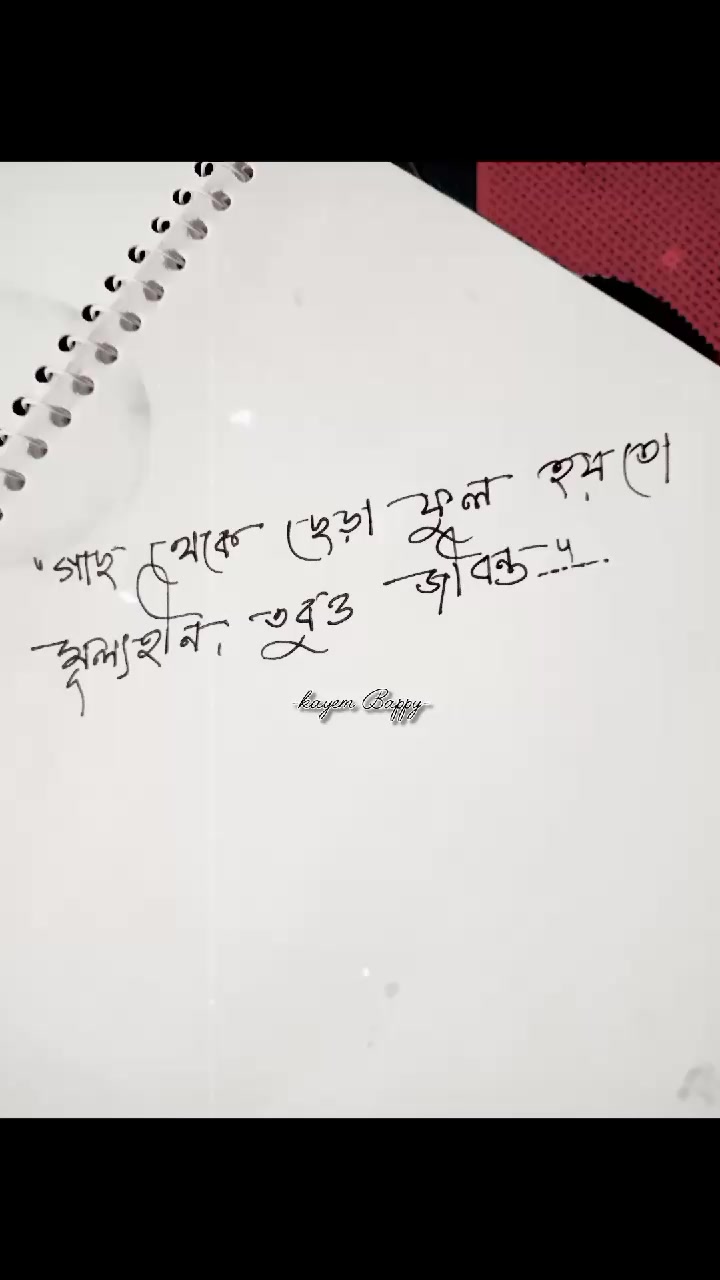 "গাছ থেকে ছেড়া ফুল হয়তো
মূল্যহীন, তবুও জীবন্ত"......
-kayem Bappy-